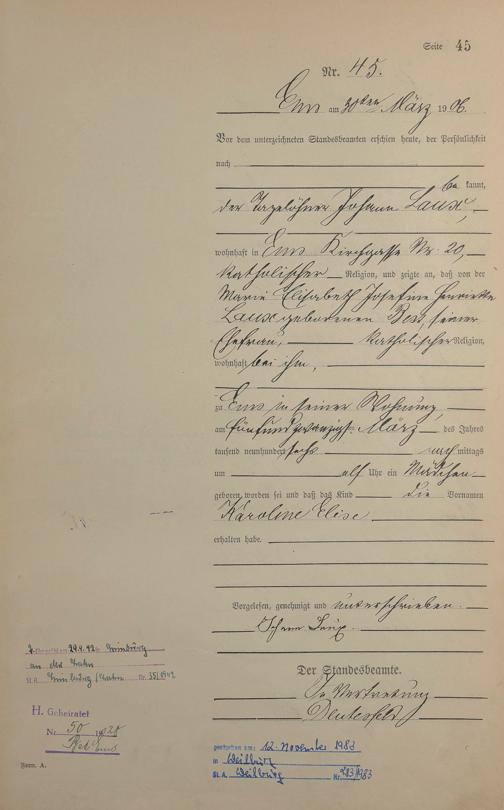 Seite 45
Nr. 45.
Ems am 30ten März 1906.
Vor dem unterzeichneten Standesbeamten erschien heute, der Persönlichkeit
nach
be kannt,
der Tagelöhner Johann Laux,
wohnhaft in Ems Kirchgasse Nr. 20,
katholischer Religion, und zeigte an, daß von der
Marie Elisabeth Josefine Henriette
Laux geborenen Bess, seiner
Ehefrau, katholischer Religion,
wohnhaft bei ihm,
zu Ems in seiner Wohnung,
am fünfundzwanzigsten März des Jahres
tausend neunhundert sechs nach mittags
um elf Uhr ein Mädchen
geboren worden sei und daß das Kind die Vornamen
Karoline Elise
erhalten habe.
Vorgelesen, genehmigt und unterschrieben.
Johann Laux.
Der Standesbeamte.
In Vertretung
H. Geheiratet
Nr. 50 1928
Bad Ems
Form. A.
gestorben am: 12. November 1983
in Weilburg
St. A. Weilburg Nr. 283/1983